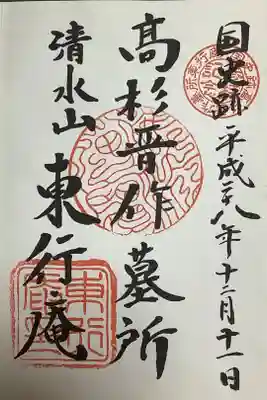 国史跡 平成二八年十二月十一日
高杉晋作墓所
清水山 東行庵